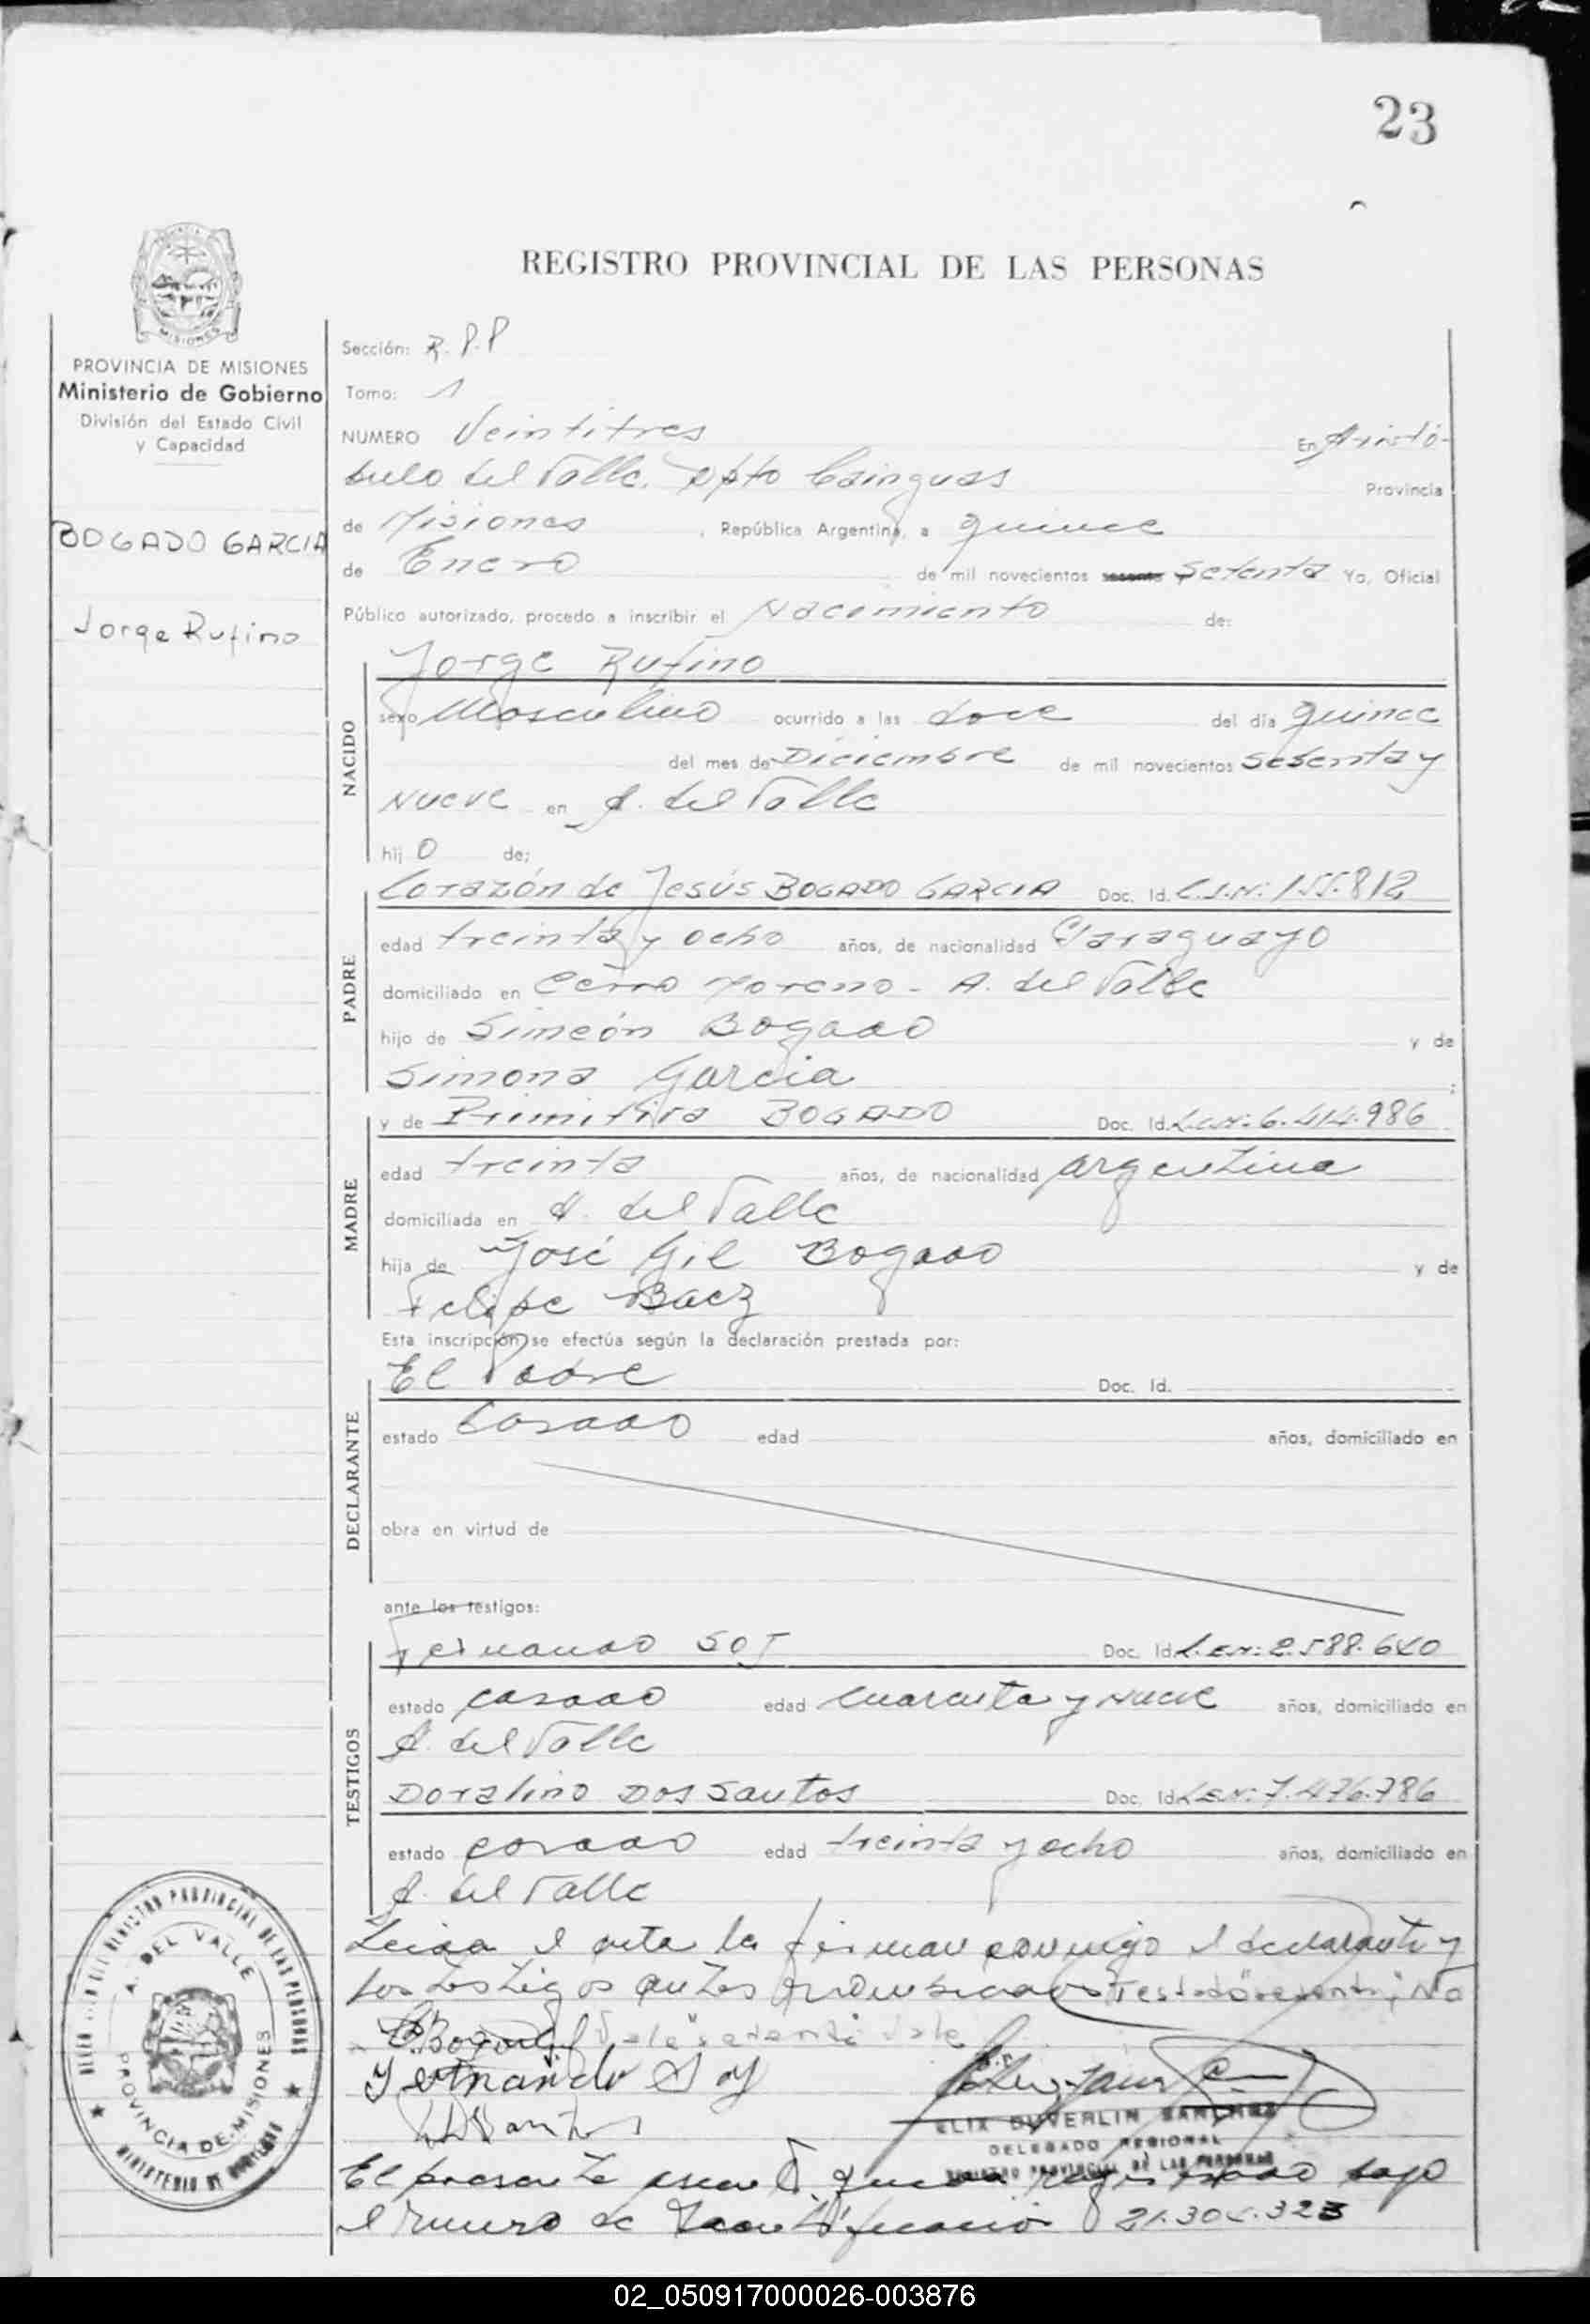 23
REGISTRO PROVINCIAL DE LAS PERSONAS
MISIONES
PROVINCIA DE MISIONES
Ministerio de Gobierno
División del Estado Civil
y Capacidad
BOGADO GARCIA
Jorge Rufino
Sección: R.P.P
Tomo: 1
NUMERO Veintitres En Aristó-
bulo del Valle. Dpto Cainguas Provincia
de Misiones, República Argentina, a quince
de Enero de mil novecientos sesenta setenta Yo, Oficial
Público autorizado, procedo a inscribir el Nacimiento de:
Jorge Rufino
NACIDO
sexo Masculino ocurrido a las doce del día quince
del mes de Diciembre de mil novecientos sesenta y
nueve en A. del Valle
hij o de;
PADRE
Corazón de Jesús BOGADO GARCIA Doc. Id. C.I.N: 155.812
edad treinta y ocho años, de nacionalidad Paraguayo
domiciliado en Cerro Moreno - A. del Valle
hijo de Simeón Bogado y de
Simona Garcia ;
MADRE
y de Primitiva BOGADO Doc. Id. L.C.N: 6.414.986
edad treinta años, de nacionalidad argentina
domiciliada en A. del Valle
hija de José Gil Bogado y de
Felipe Baez
Esta inscripción se efectúa según la declaración prestada por:
DECLARANTE
El Padre Doc. Id.
estado Casado edad años, domiciliado en
obra en virtud de
ante los testigos:
TESTIGOS
Fernando SOJ Doc. Id. L.E.N: 2.588.640
estado casado edad cuarenta y nueve años, domiciliado en
A. del Valle
Doralino Dos Santos Doc. Id. L.E.N: 7.476.786
estado casado edad treinta y ocho años, domiciliado en
A. del Valle
Leida el acta la firman conmigo el declarante y
los testigos antes Testado "sesenta" No
Vale "setenta" Vale
Fernando
DSantos
ELIX DUVERLIN SANCHEZ
DELEGADO REGIONAL
REGISTRO PROVINCIAL DE LAS PERSONAS
El presente queda registrado bajo
el numero de Identificación 21.305.323
DEL REGISTRO PROVINCIAL DE LAS PERSONAS
A. DEL VALLE
PROVINCIA DE MISIONES
MINISTERIO DE GOBIERNO
02_050917000026-003876